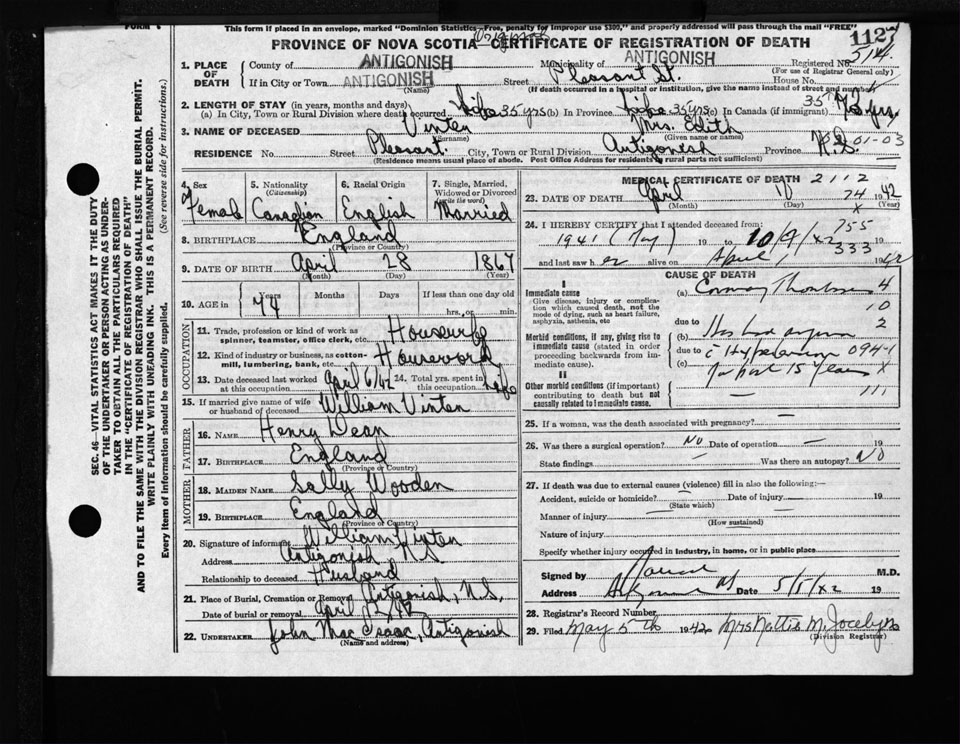 This form if placed in an envelope, marked "Dominion Statistics—Free, penalty for improper use $300," and properly addressed will pass through the mail "FREE"
PROVINCE OF NOVA SCOTIA—CERTIFICATE OF REGISTRATION OF DEATH
1. PLACE OF DEATH
County of ANTIGONISH Municipality of ANTIGONISH Registered No. 514
(For use of Registrar General only)
If in City or Town ANTIGONISH Street Pleasant St. House No.
(Name) (If death occurred in a hospital or institution, give the name instead of street and number)
2. LENGTH OF STAY (in years, months and days)
(a) In City, Town or Rural Division where death occurred 35 yrs (b) In Province 35 yrs (c) In Canada (if immigrant) 35
3. NAME OF DECEASED Vinten Mrs. Edith
(Surname) (Given name or names)
RESIDENCE No. Street Pleasant City, Town or Rural Division Antigonish Province N.S. 01-03
(Residence means usual place of abode. Post Office Address for residents in rural parts not sufficient)
4. Sex Female
5. Nationality (Citizenship) Canadian
6. Racial Origin English
7. Single, Married, Widowed or Divorced (write the word) Married
8. BIRTHPLACE England
(Province or Country)
9. DATE OF BIRTH April 28 1867
(Month) (Day) (Year)
10. AGE in 74 Years Months Days If less than one day old hrs. or min.
OCCUPATION
11. Trade, profession or kind of work as spinner, teamster, office clerk, etc. Housewife
12. Kind of industry or business, as cotton-mill, lumbering, bank, etc. Housework
13. Date deceased last worked at this occupation April 6/42 14. Total yrs. spent in this occupation
15. If married give name of wife or husband of deceased William Vinten
FATHER
16. NAME Henry Dean
17. BIRTHPLACE England
(Province or Country)
MOTHER
18. MAIDEN NAME Sally Wooden
19. BIRTHPLACE England
(Province or Country)
20. Signature of informant William Vinten
Address Antigonish N.S.
Relationship to deceased Husband
21. Place of Burial, Cremation or Removal Antigonish, N.S.
Date of burial or removal April
22. UNDERTAKER John MacIsaac, Antigonish
(Name and address)
MEDICAL CERTIFICATE OF DEATH 2112
23. DATE OF DEATH April 1942
(Month) (Day) (Year)
24. I HEREBY CERTIFY that I attended deceased from:
1941 19 to 10/4/42 19
755
333
and last saw her alive on April 1942
CAUSE OF DEATH
I
Immediate cause
Give disease, injury or complication which caused death, not the mode of dying, such as heart failure, asphyxia, asthenia, etc
(a) 4
10
due to 2
Morbid conditions, if any, giving rise to immediate cause (stated in order proceeding backwards from immediate cause).
(b)
due to 094-1
(c) for past 15 years X
II
Other morbid conditions (if important) contributing to death but not causally related to immediate cause.
111
25. If a woman, was the death associated with pregnancy? —
26. Was there a surgical operation? No Date of operation — 19
State findings — Was there an autopsy? No
27. If death was due to external causes (violence) fill in also the following:—
Accident, suicide or homicide? Date of injury 19
(State which)
Manner of injury
(How sustained)
Nature of injury
Specify whether injury occurred in industry, in home, or in public place
Signed by M.D.
Address Date 5/5/42 19
28. Registrar's Record Number
29. Filed May 5th 1942 Mrs Mattie M. Jocelyn
(Division Registrar)
SEC. 46—VITAL STATISTICS ACT MAKES IT THE DUTY
OF THE UNDERTAKER OR PERSON ACTING AS UNDERTAKER
TO OBTAIN ALL THE PARTICULARS REQUIRED
IN THE "CERTIFICATE OF REGISTRATION OF DEATH"
AND TO FILE THE SAME WITH THE DIVISION REGISTRAR WHO SHALL ISSUE THE BURIAL PERMIT.
WRITE PLAINLY WITH UNFADING INK. THIS IS A PERMANENT RECORD.
Every item of information should be carefully supplied. (See reverse side for instructions.)